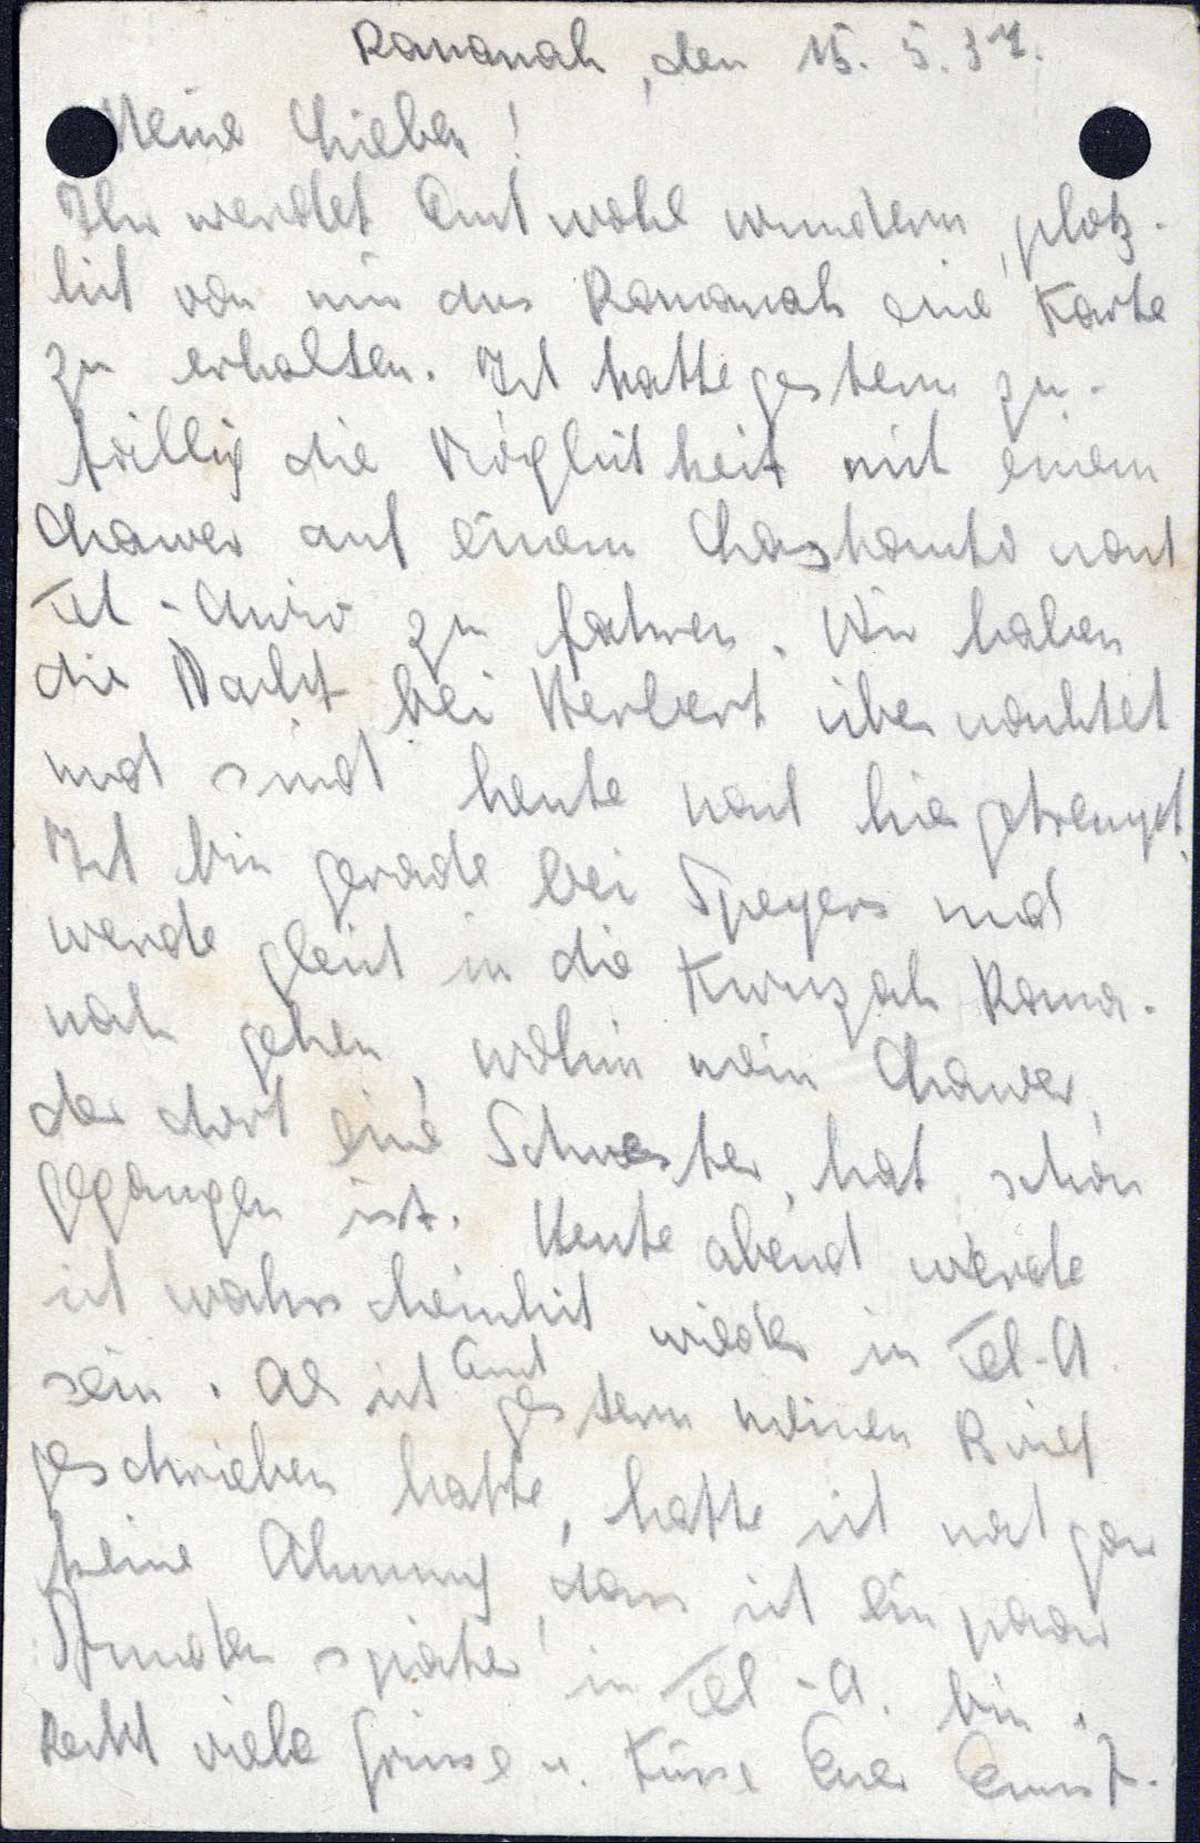 Raananah, den 15. 5. 37.
Meine Lieben!
Ihr werdet Euch wohl wundern, plötz-
lich von mir aus Raananah eine Karte
zu erhalten. Ich hatte gestern zu-
fällig die Möglichkeit mit einem
Chawer auf einem Lastauto nach
Tel-Aviv zu fahren. Wir haben
die Nacht bei Herbert übernachtet
und sind heute nach hier getrempt.
Ich bin gerade bei Speyers und
werde gleich in die Kwuzah Rana-
nah gehen, wohin mein Chawer,
der dort eine Schwester hat, schon
gegangen ist. Heute abend werde
ich wahrscheinlich wieder in Tel-A.
sein. Als ich Euch gestern meinen Brief
geschrieben hatte, hatte ich noch gar
keine Ahnung, dass ich ein paar
Stunden später in Tel-A. bin.
Recht viele Grüsse u. Küsse Euer Ernst.